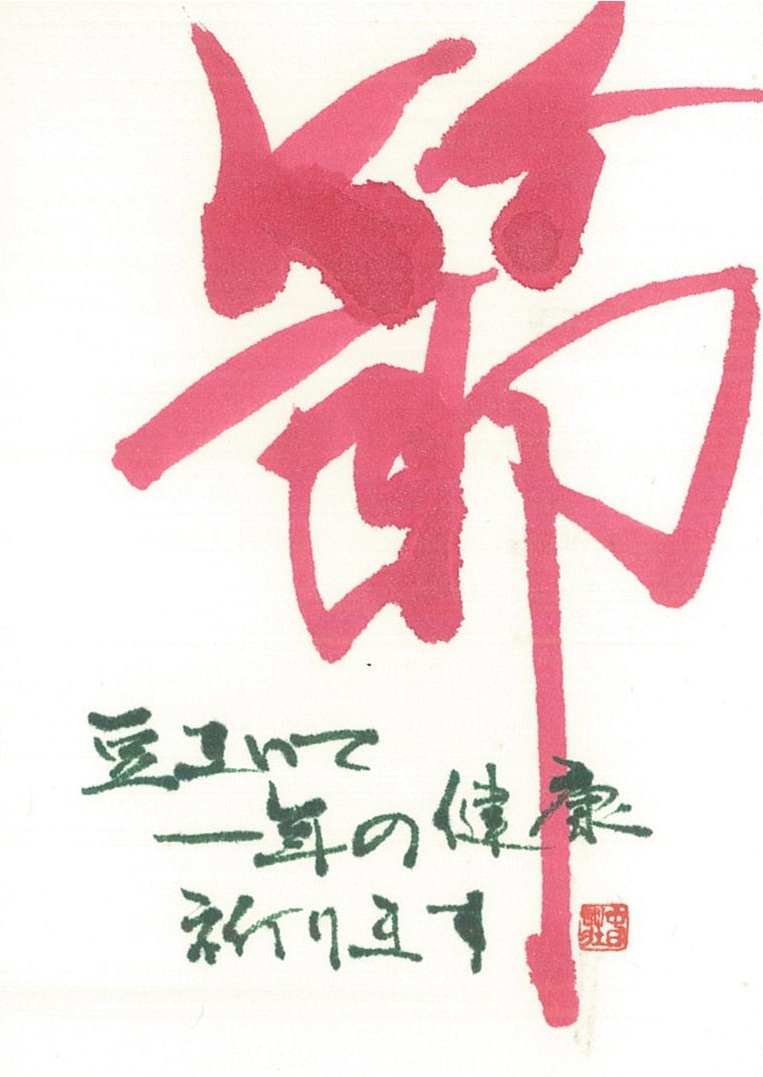 節
豆まいて
一年の健康
祈ります